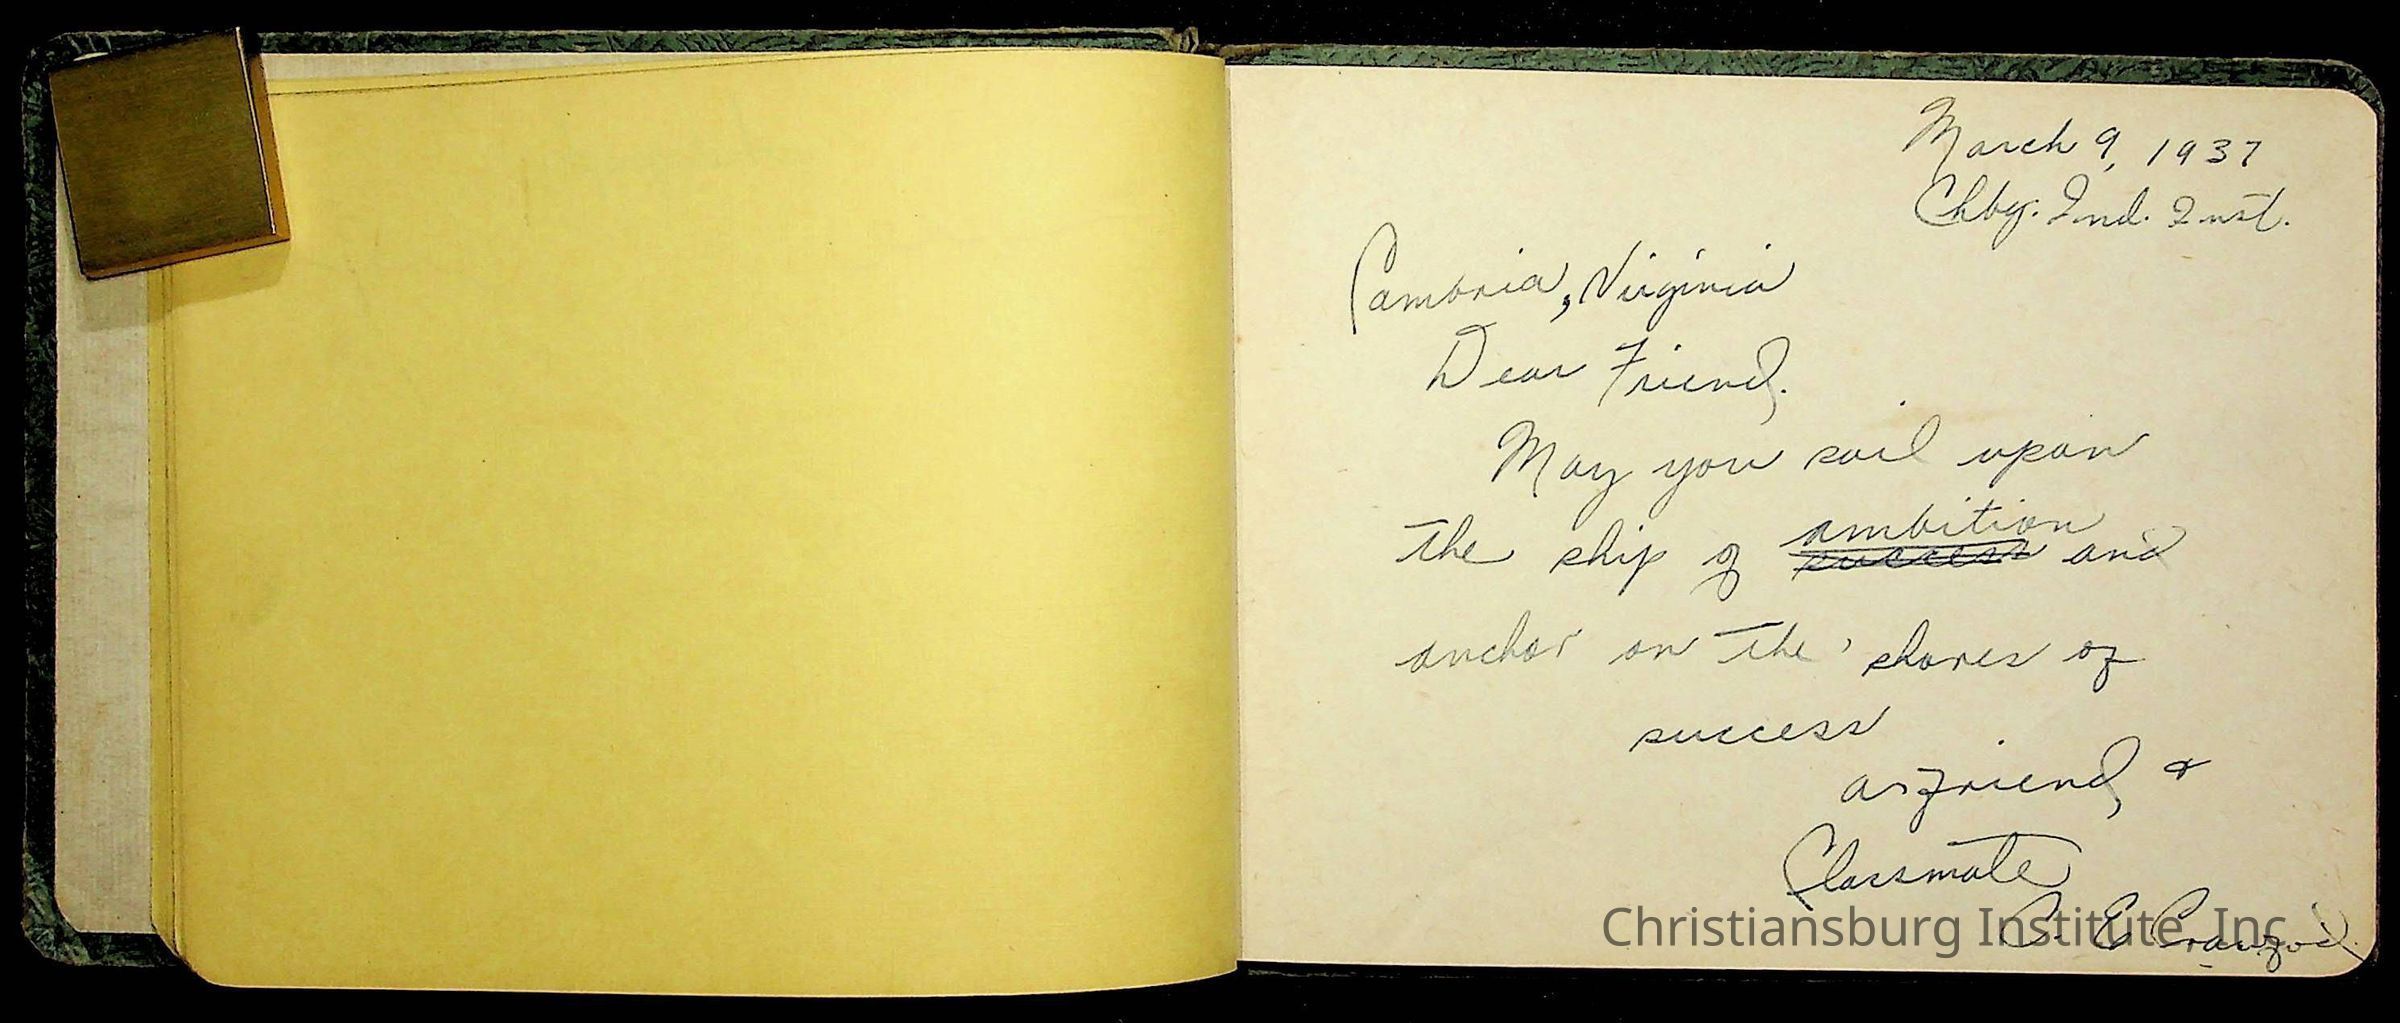 March 9, 1937
Chbg. Ind. Inst.
Cambria, Virginia
Dear Friend.
May you sail upon
ambition
the ship of success and
anchor on the shores of
success
as friend &
Classmate
C. E. Crawford
Christiansburg Institute, Inc.